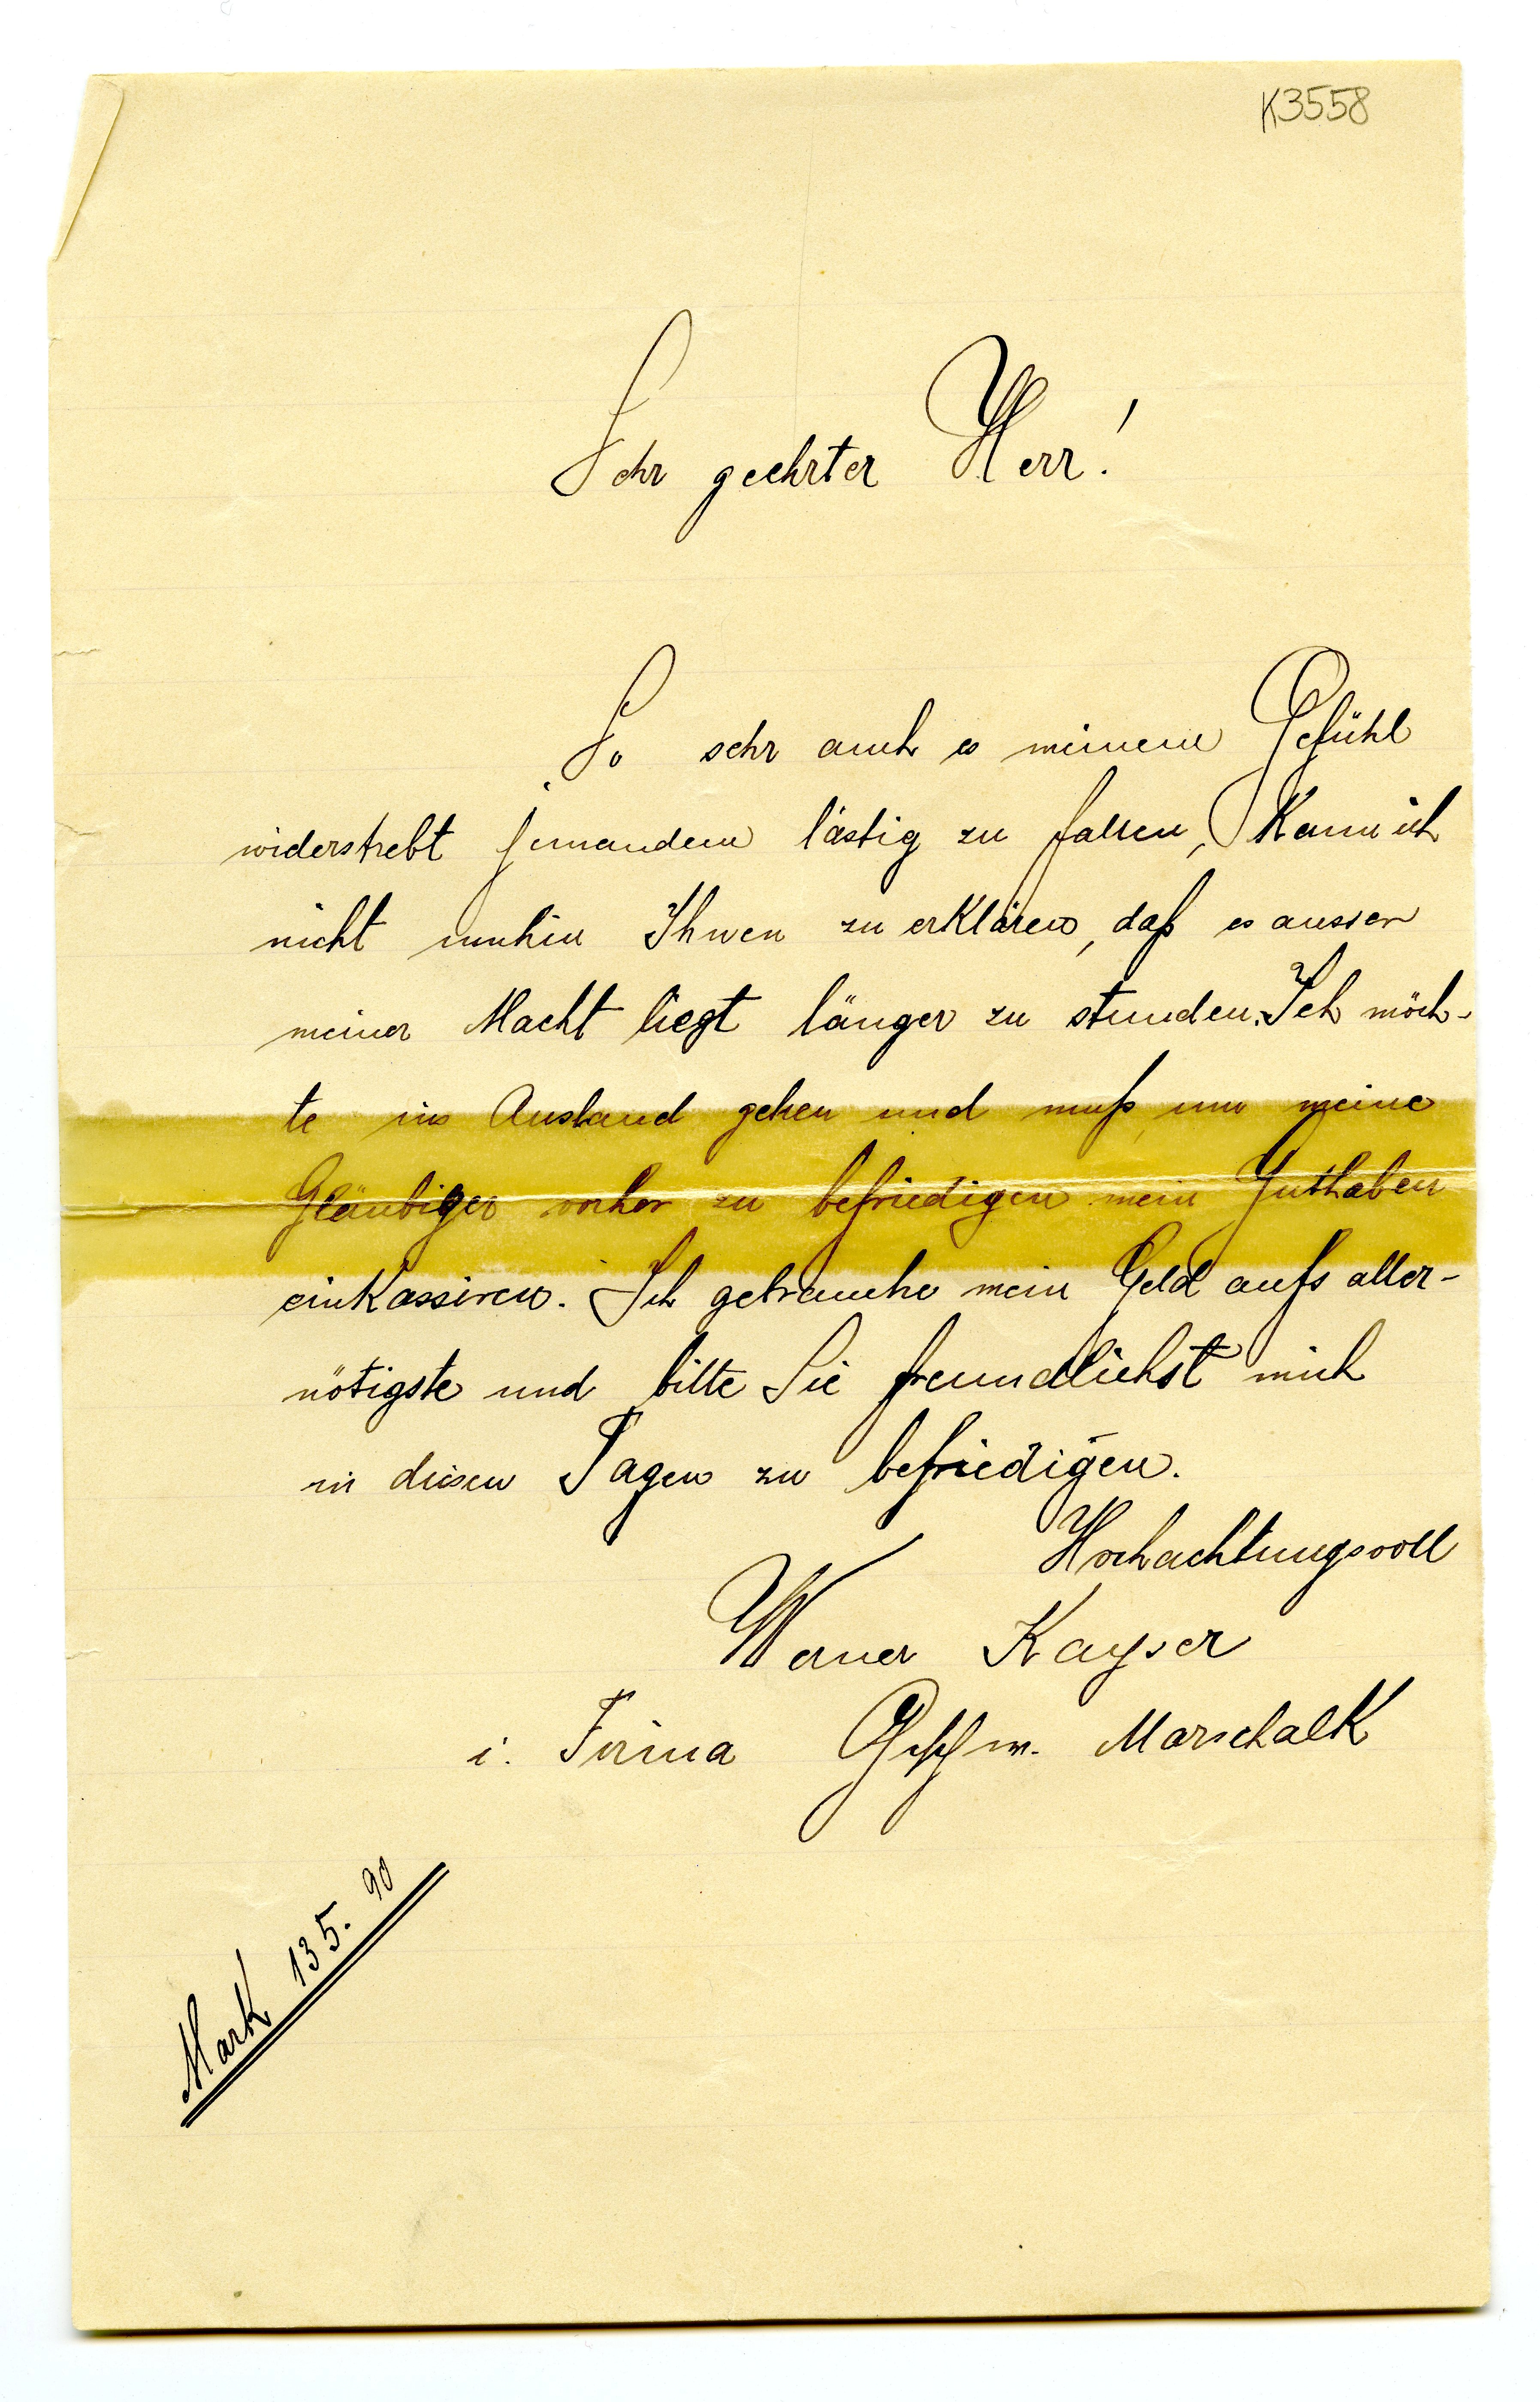 K3558
Sehr geehrter Herr!
So sehr auch es meinem Gefühl
widerstrebt jemandem lästig zu fallen, kann ich
nicht umhin Ihnen zu erklären, daß es ausser
meiner Macht liegt länger zu stunden. Ich möch-
te ins Ausland gehen und muß um meine
Gläubiger vorher zu befriedigen mein Guthaben
einkassiren. Ich gebrauche mein Geld aufs aller-
nötigste und bitte Sie freundlichst mich
in diesen Tagen zu befriedigen.
Hochachtungsvoll
Werner Kayser
i. Firma Geschw. Marschalk
Mark 135.90